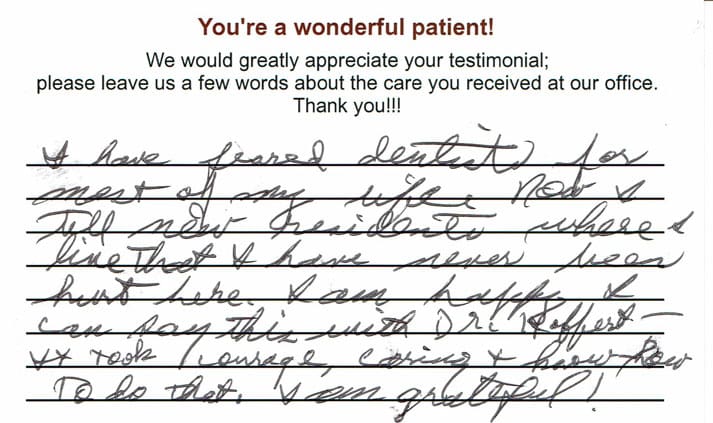 You're a wonderful patient!
We would greatly appreciate your testimonial;
please leave us a few words about the care you received at our office.
Thank you!!!
I have feared dentists for
most of my life. Now I
tell new residents where I
live that I have never been
hurt here. I am happy I
can say this with Dr. Hoffert —
It took courage, caring + know how
to do that. I am grateful!